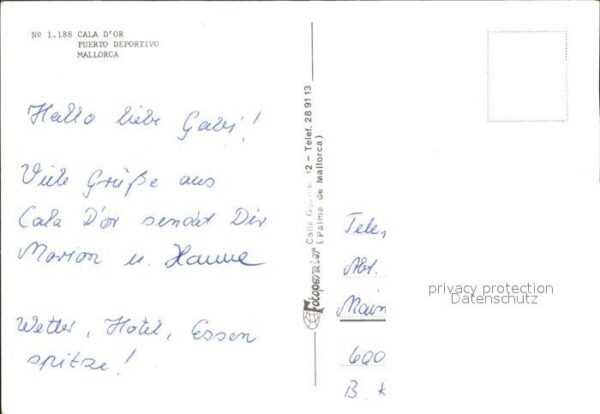 Nº 1.188 CALA D'OR
PUERTO DEPORTIVO
MALLORCA
Hallo liebe Gabi!
Viele Grüße aus
Cala D'or sendet Dir
Marion u. Hanne
Wetter, Hotel, Essen
spitze!
Fotoperator Calle 12 - Telef. 28 91 13
(Palma de Mallorca)
Abt.
600
B.
privacy protection
Datenschutz